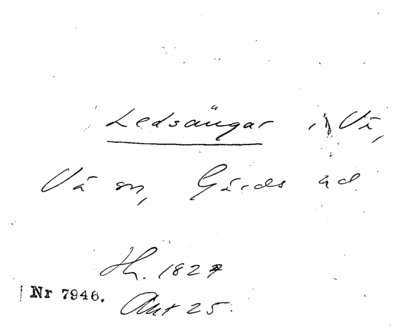 Ledsängar i Vä,
Vä sn, Gärds hd.
Hh. 1827
Nr 7946.
Ant 25.